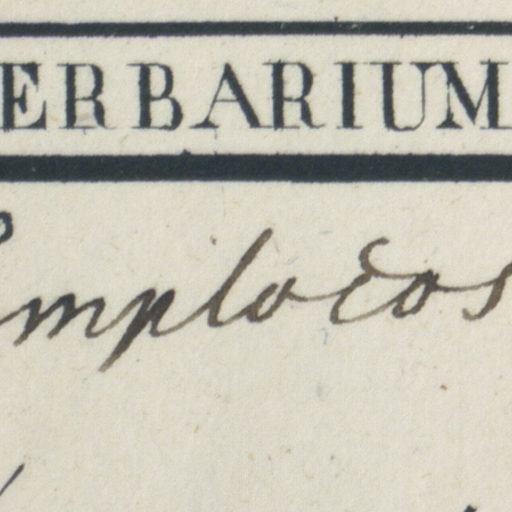 ERBARIUM
ymplocos